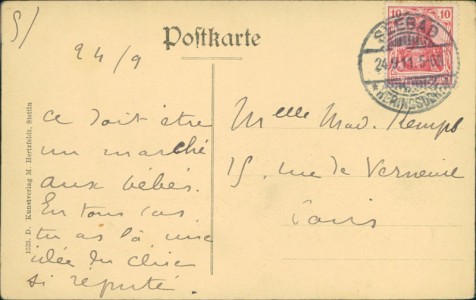 5/
24/9
Postkarte
10 10
SEEBAD
24.9.11.5-6
* HERINGSDORF
Ce doit être
un marché
aux bébés.
En tous cas
tu as là une
idée du chic
si réputé.
Melle Mad. Kempf
15, rue de Verneuil
Paris
1525. D. Kunstverlag M. Hertzfeldt, Stettin